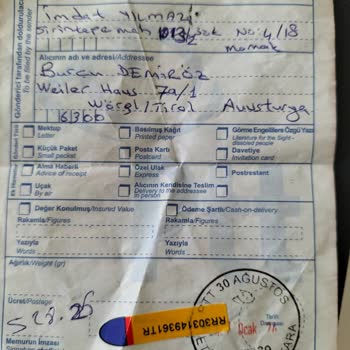 Gönderici tarafından doldurulacak
To be filled by the sender
İmdat YILMAZ
No: 4/18
Mamak
Alıcının adı ve adresi/Addressee
Burçin DEMİRÖZ
Weiler Haus 7a/1
Wörgl/Tirol Avusturya
6300
Mektup
Letter
Basılmış Kağıt
Printed paper
Görme Engellilere Özgü Yazı
Literature for the Sight-
dissicled people
Küçük Paket
Small packet
Posta Kartı
Postcard
Davetiye
Invitation card
Alma Haberli
Advice of receipt
Özel Ulak
Express
Postrestant
Uçak
By air
Alıcının Kendisine Teslim
Delivery to the addressee
in person
Değer Konulmuş/Insured Value
Ödeme Şartlı/Cash-on-delivery
Rakamla/Figures
Rakamla/Figures
Yazıyla
Words
Yazıyla
Words
Ağırlık/Weight (gr)
Ücret/Postage
Memurun İmzası
RR303149361TR
PTT 30 AĞUSTOS
Ocak
Tarih